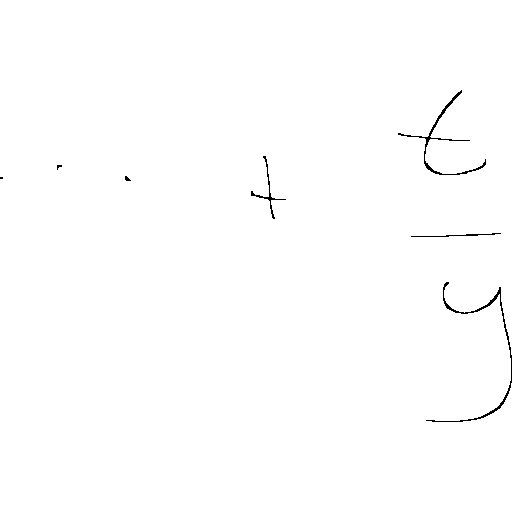 ... + \frac{t}{y}